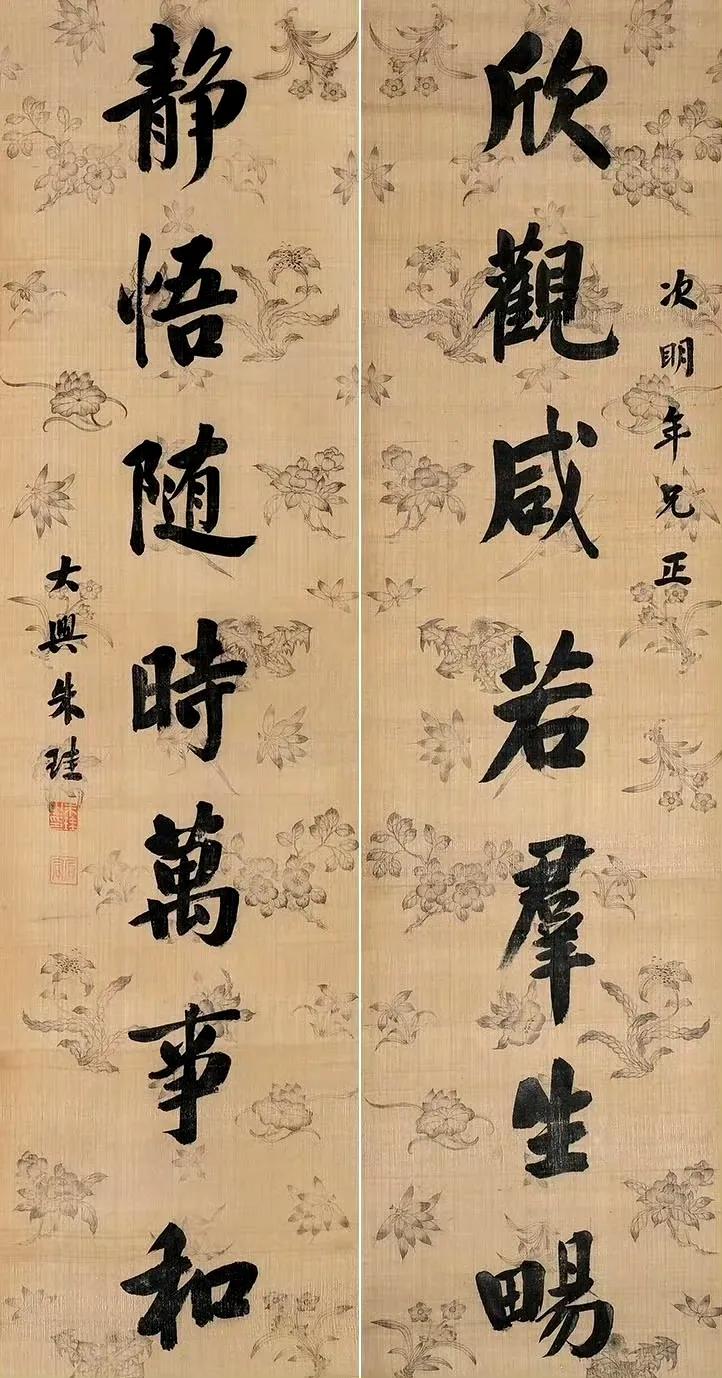 次明年兄正
欣觀咸若羣生暢
靜悟随時萬事和
大興朱珪